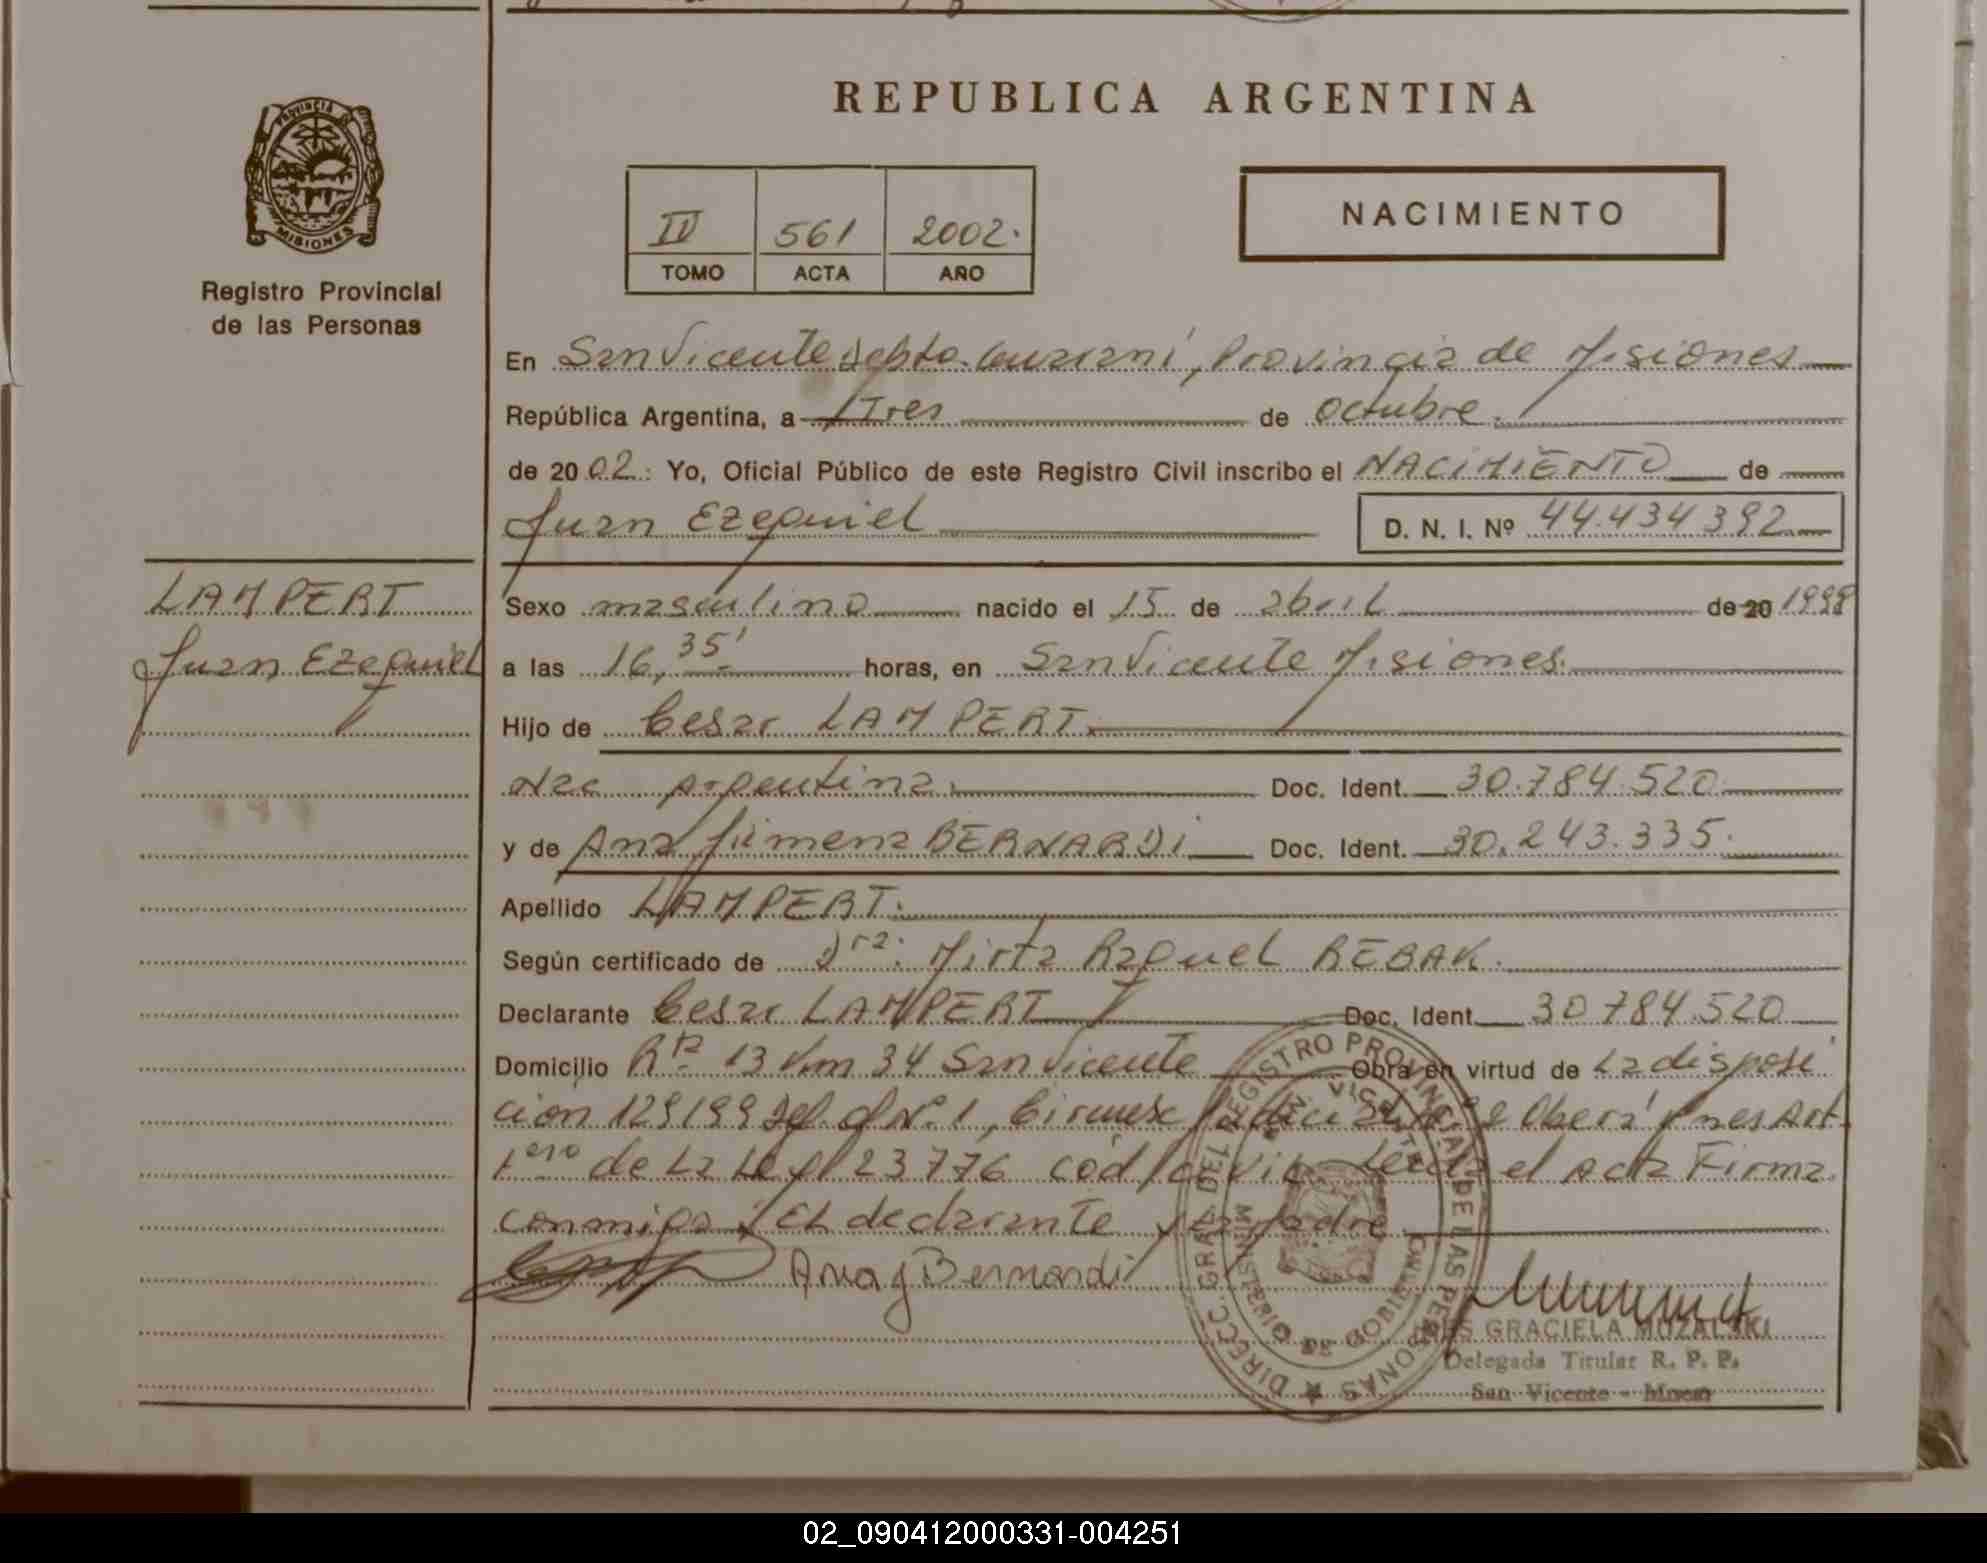 REPUBLICA ARGENTINA
PROVINCIA
MISIONES
Registro Provincial
de las Personas
IV 561 2002.
TOMO ACTA AÑO
NACIMIENTO
En San Vicente Depto. Guaraní, Provincia de Misiones
República Argentina, a Tres de octubre.
de 2002: Yo, Oficial Público de este Registro Civil inscribo el NACIMIENTO de
Juan Ezequiel D. N. I. Nº 44.434392
LAMPERT
Juan Ezequiel
Sexo masculino nacido el 15 de abril de 20 1998
a las 16,35' horas, en San Vicente Misiones.
Hijo de Cesar LAMPERT.
Nac Argentina. Doc. Ident. 30.784.520
y de Ana Jimena BERNARDI Doc. Ident. 30.243.335.
Apellido LAMPERT.
Según certificado de Dra. Mirta Raquel REBAK.
Declarante Cesar LAMPERT Doc. Ident. 30784.520
Domicilio Rta. 13 Km 34 San Vicente Obra en virtud de La disposi
cion 129199 del Nº 1, de Oberá Mnes Art.
1ero de La Ley 23776 cod civil el Acta Firma
conmigo EL declarante y La Madre
Ana J Bernardi
DIRECC. GRAL. DEL REGISTRO PROVINCIAL DE LAS PERSONAS
SAN VICENTE
MINISTERIO DE GOBIERNO
INES GRACIELA MUZALSKI
Delegada Titular R. P. P.
San Vicente - Mnes
02_090412000331-004251